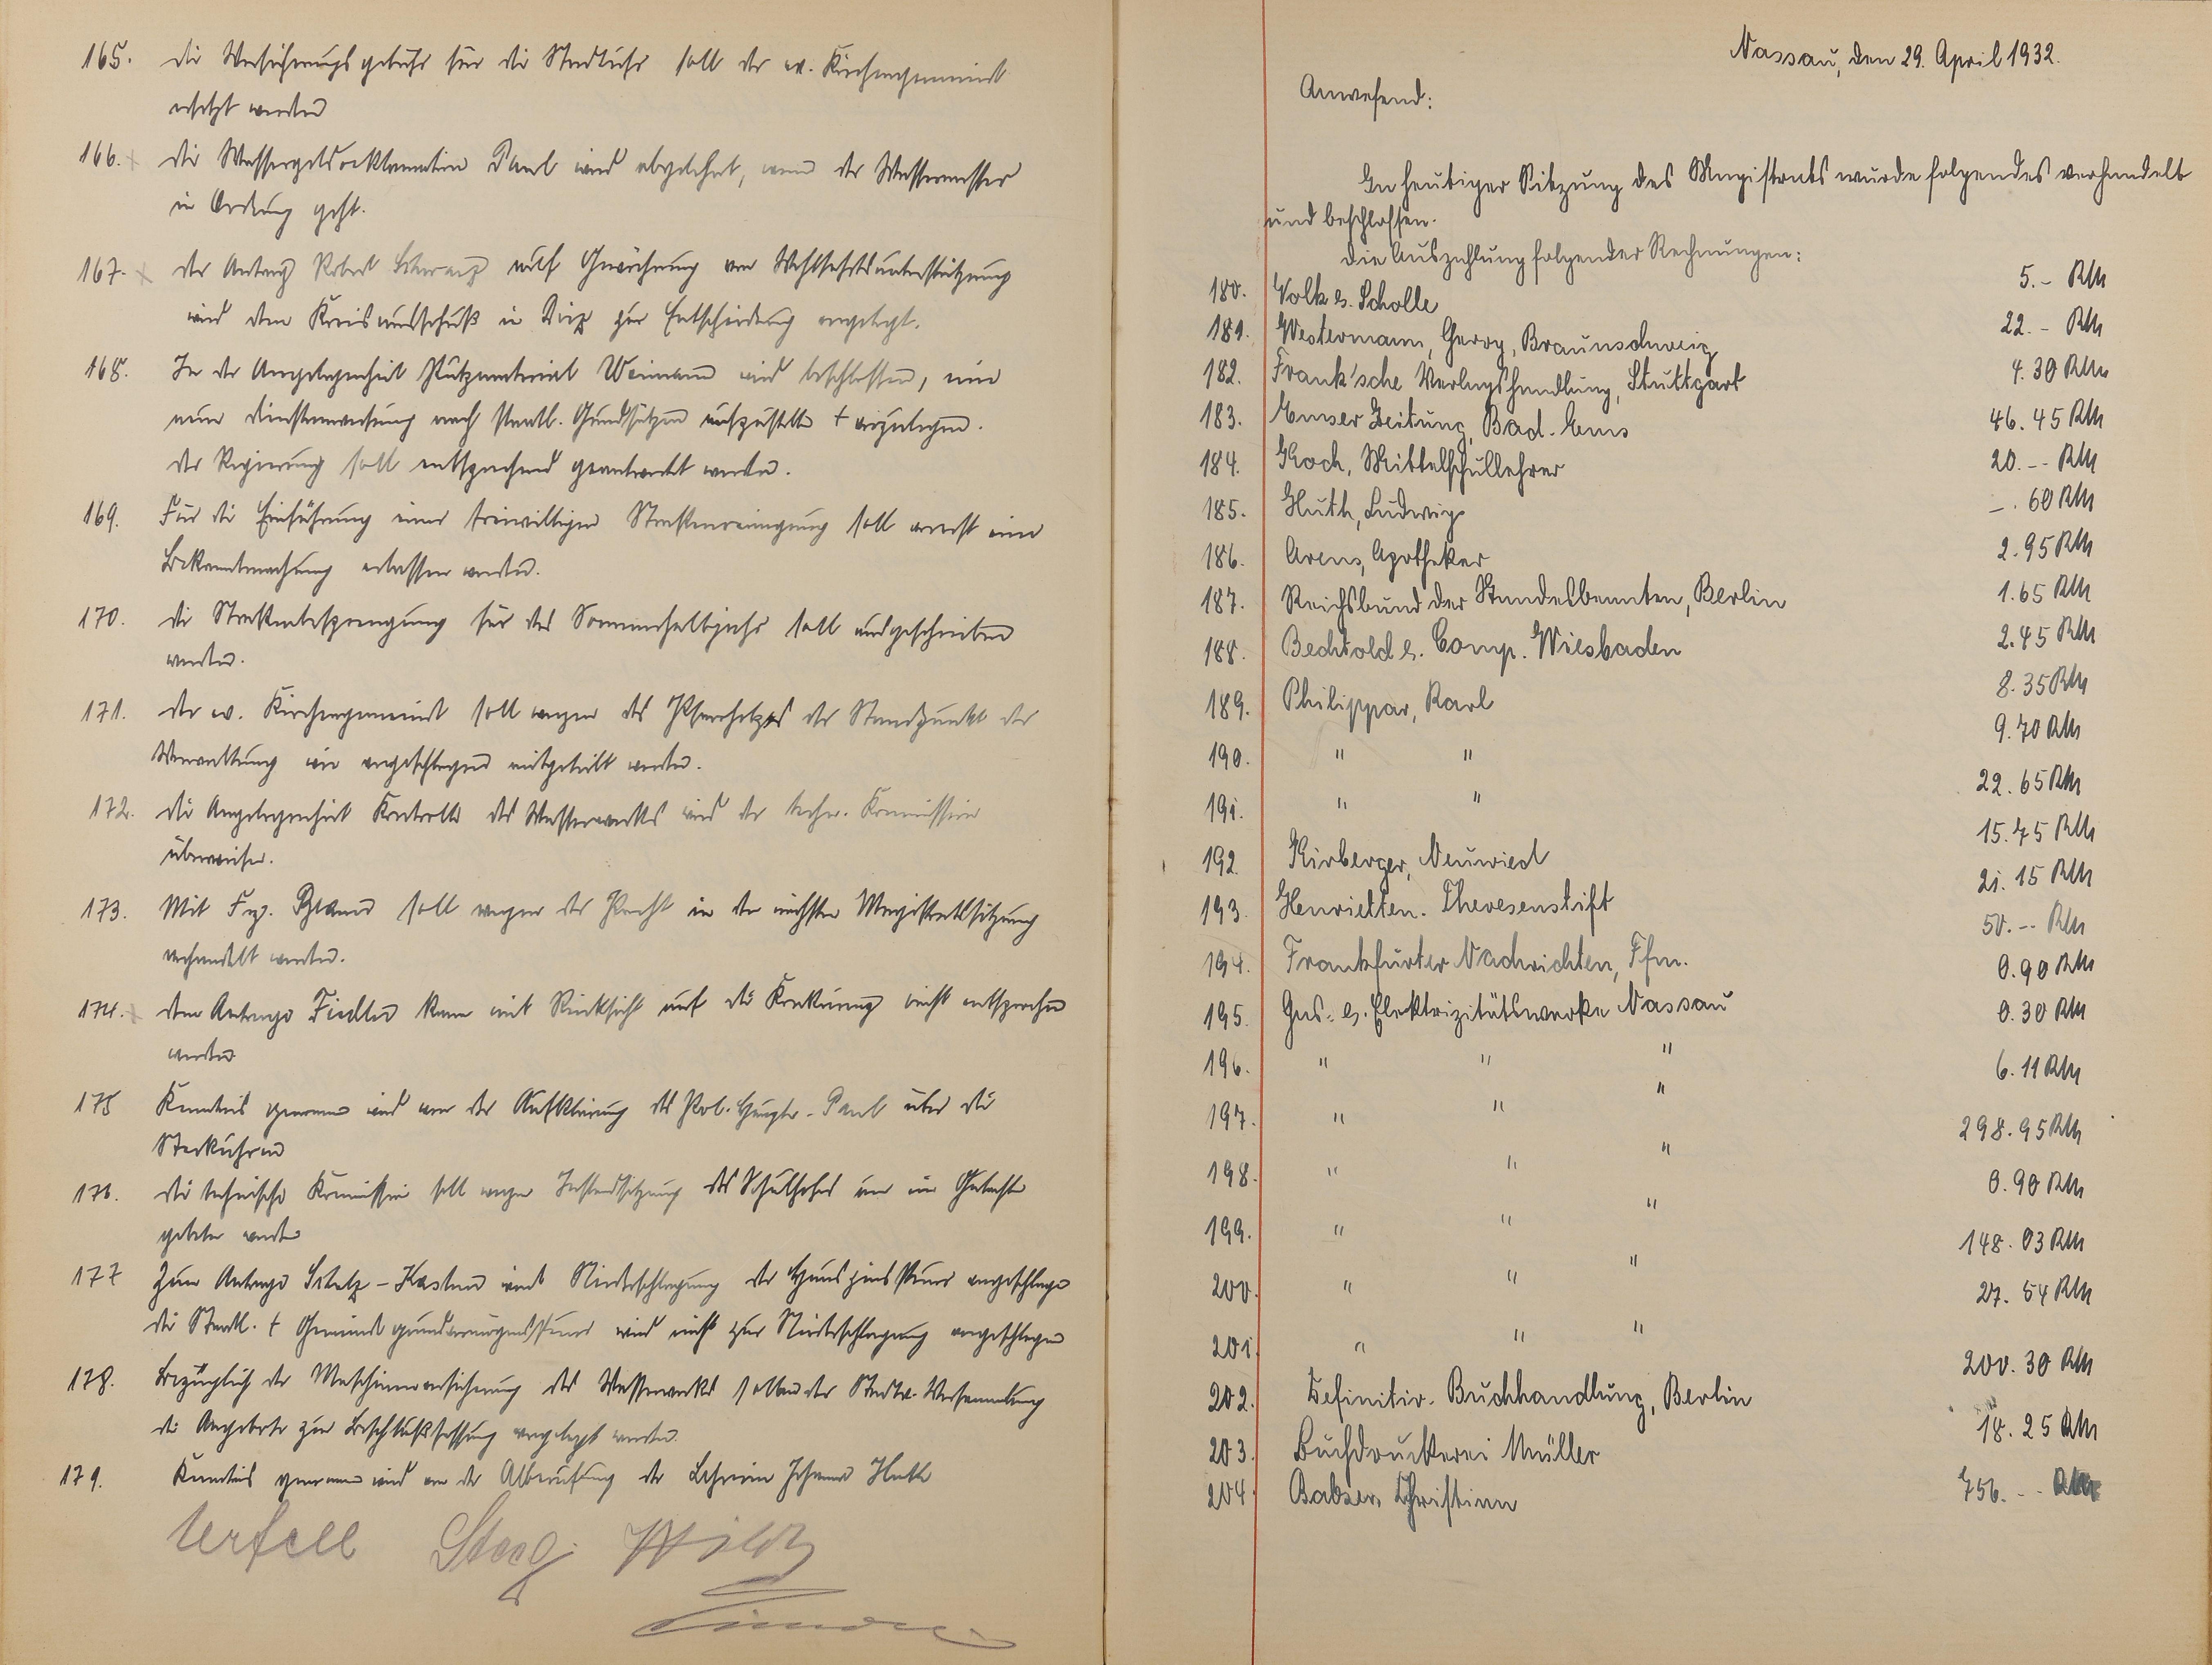 165. Die Versicherungsgebühr für die Stadtuhr soll der ev. Kirchengemeinde
ersetzt werden
166. Die Wassergeldreklamation Paul wird abgelehnt, wenn der Wassermesser
in Ordnung geht.
167. Der Antrag Robert Schwarz auf Gewährung von Wohlfahrtsunterstützung
wird dem Kreisausschuß in Diez zur Entscheidung vorgelegt.
168. In der Angelegenheit Putzmaterial Weimann wird beschlossen, eine
neue Dienstanweisung nach staatl. Grundsätzen aufzustellen + vorzulegen.
Der Regierung soll entsprechend geantwortet werden.
169. Für die Einführung einer freiwilligen Straßenreinigung soll vorerst eine
Bekanntmachung erlassen werden.
170. Die Straßenbesprengung für das Sommerhalbjahr soll ausgeschrieben
werden.
171. Der ev. Kirchengemeinde soll wegen des Pfarrholzes der Standpunkt der
Verwaltung wie vorgeschlagen mitgeteilt werden.
172. Die Angelegenheit Kontrolle des Wasserwerks wird der techn. Kommission
überwiesen.
173. Mit soll wegen der Pacht in der nächsten Magistratssitzung
verhandelt werden.
174. Dem Antrage Fiedler kann mit Rücksicht auf die nicht entsprochen
werden
175 Kenntnis genommen wird von der Aufklärung des Pol. Hauptw. Paul über die
Steckuhren
176. Die technische Kommission soll wegen Instandsetzung des Schulhofes um ein Gutachten
gebeten werden
177 Zum Antrage wird Niederschlagung der Hauszinssteuer vorgeschlagen
die Staatl. + Gemeindegrundvermögenssteuer wird nicht zur Niederschlagung vorgeschlagen
178. Bezüglich der Maschinenversicherung des Wasserwerks sollen der Stadtv. Versammlung
die Angebote zur Beschlußfassung vorgelegt werden.
179. Kenntnis genommen wird von der Abberufung der Lehrerin Johanna Huth
Nassau, den 29. April 1932.
Anwesend:
In heutiger Sitzung des Magistrats wurde folgendes verhandelt
und beschlossen.
Die Auszahlung folgender Rechnungen:
180. Volk u. Scholle 5.- RM
181. Westermann, Georg, Braunschweig 22.- RM
182. Frank'sche Verlagshandlung, Stuttgart 4.30 RM
183. Emser Zeitung, Bad-Ems 46.45 RM
184. Koch, Mittelschullehrer 20.-- RM
185. Huth, Ludwig -.60 RM
186. Arens, Apotheker 2.95 RM
187. Reichsbund der Standesbeamten, Berlin 1.65 RM
188. Bechtold u. Comp. Wiesbaden 2.45 RM
189. Philippar, Karl 8.35 RM
190. " " 9.70 RM
191. " " 22.65 RM
192. Kirberger, Neuwied 15.45 RM
193. Henrietten-Theresenstift 21.15 RM
194. Frankfurter Nachrichten, Ffm. 50.-- RM
195. Gas- u. Elektrizitätswerke Nassau 0.90 RM
196. " " " 0.30 RM
197. " " " 6.11 RM
198. " " " 298.95 RM
199. " " " 0.90 RM
200. " " " 148.03 RM
201. " " " 27.54 RM
202. Definitiv-Buchhandlung, Berlin 200.30 RM
203. Buchdruckerei Müller 18.25 RM
204. Balzer, Christian 756.-- RM